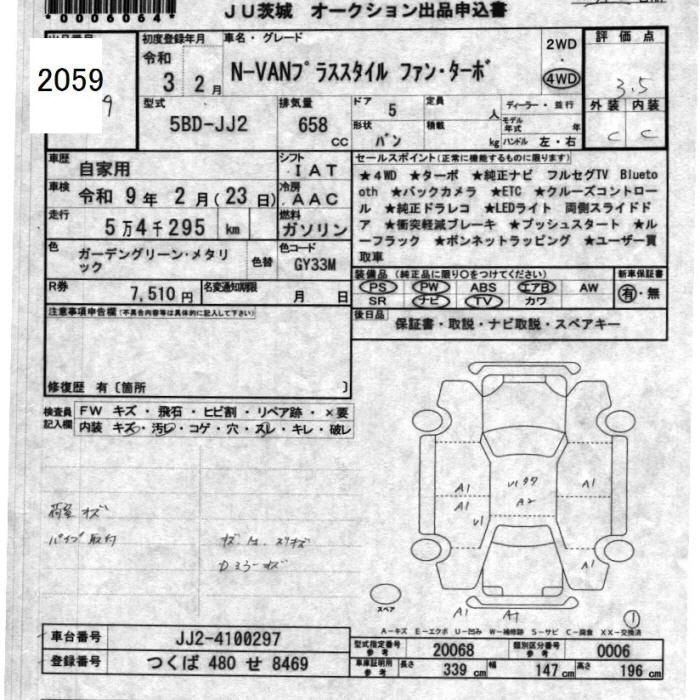 *0006064*
JU茨城 オークション出品申込書
2059
初度登録年月
令和
3 2月
車名・グレード
N-VANプラススタイル ファン・ターボ
2WD
・
4WD
評価点
3.5
外装 内装
C C
型式
5BD-JJ2
排気量
658
CC
ドア
5
定員
人
形状
バン
積載
kg
ディーラー・並行
モデル年式
年
ハンドル 左・右
車歴
自家用
シフト
IAT
車検
令和 9年 2月(23日)
冷房
AAC
走行
5万4千295 km
燃料
ガソリン
色
ガーデングリーン・メタリック
色替
色コード
GY33M
R券
7,510円
名変通知期限
月 日
セールスポイント(正常に機能するものに限ります)
★4WD ★ターボ ★純正ナビ フルセグTV Blueto
oth ★バックカメラ ★ETC ★クルーズコントロー
ル ★純正ドラレコ ★LEDライト 両側スライドド
ア ★衝突軽減ブレーキ ★プッシュスタート ★ル
ーフラック ★ボンネットラッピング ★ユーザー買
取車
装備品(純正品に限り○をつけてください)
PS PW ABS エアB AW
SR ナビ TV カワ
新車保証書
有・無
後日品
保証書・取説・ナビ取説・スペアキー
注意事項申告欄(不具合内容等は具体的に記入して下さい)
修復歴 有〔箇所 〕
検査員
記入欄
FW キズ・飛石・ヒビ割・リペア跡・×要
内装 キズ・汚レ・コゲ・穴・スレ・キレ・破レ
荷室 キズ
パイプ取付
Dミラーキズ
A1
A1
U1
A2
A1
A1
A1
A1
スペア
1
A-キズ E-エクボ U-凹み W-補修跡 S-サビ C-腐食 XX-交換済
車台番号
JJ2-4100297
登録番号
つくば 480 せ 8469
型式指定番号
参考
20068
類別区分番号
参考
0006
車庫証明用
参考
長さ 339 cm 幅 147 cm 高さ 196 cm